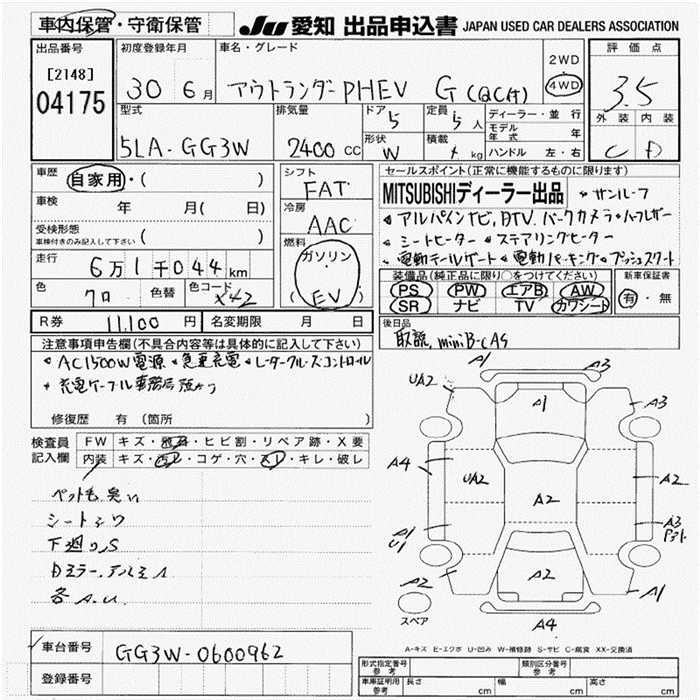 車内保管・守衛保管
JU 愛知 出品申込書 JAPAN USED CAR DEALERS ASSOCIATION
出品番号 初度登録年月 車名・グレード 評価点
[2148]
04175
30 6月 アウトランダーPHEV G (QC付) 2WD 4WD 3.5
型式 排気量 ドア 5 定員 5人 ディーラー・並行 外装 内装
5LA-GG3W 2400 CC 形状 W 積載 kg モデル年式 年 C D
ハンドル 左・右
車歴 自家用・( ) シフト FAT セールスポイント(正常に機能するものに限ります)
車検 年 月( 日) 冷房 AAC MITSUBISHIディーラー出品 サンルーフ
受検形態 アルパインナビ, DTV, バックカメラ・ハーフレザー
車検付きのみ記入して下さい ( ) 燃料 ガソリン・EV シートヒーター ステアリングヒーター
走行 6万1千044km 電動テールゲート 電動パーキング プッシュスタート
色 クロ 色替 色コード X42 装備品(純正品に限り○をつけてください) 新車保証書
PS PW エアB AW 有・無
SR ナビ TV カワシート
R券 11,100円 名変期限 月 日 後日品
取説, miniB-CAS
注意事項申告欄(不具合内容等は具体的に記入して下さい)
AC1500W電源 急速充電 レーダークルーズコントロール
充電ケーブル事務局預かり
修復歴 有 (箇所 )
検査員記入欄 FW キズ・飛石・ヒビ割・リペア跡・X要
内装 キズ・汚レ・コゲ・穴・スレ・キレ・破レ
ペット毛, 臭い
シートシワ
下廻りS
各A.U.
A1 A3
UA2 A1 A3
A4 UA2 A2 A2
A1 U1 A3
A2 A2 A1
スペア A4
A-キズ E-エクボ U-凹み W-補修跡 S-サビ C-腐食 XX-交換済
車台番号 GG3W-0600962
登録番号
形式指定番号 参考 類別区分番号 参考
車庫証明用 参考 長さ cm 幅 cm 高さ cm